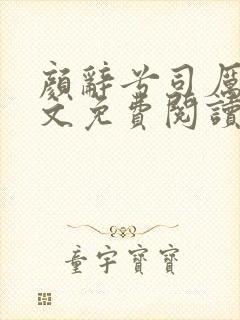 顏辭兮司厲
文免費閱讀
童宇寶寶